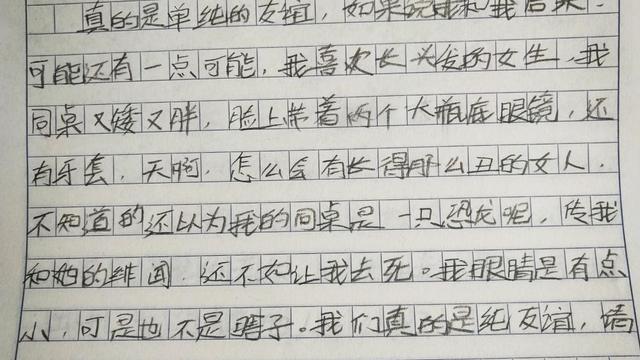 真的是单纯的友谊，如果说她和我后桌．
可能还有一点可能，我喜欢长头发的女生，我
同桌又矮又胖，脸上带着两个大瓶底眼镜，还
有牙套，天啊，怎么会有长得那么丑的女人．
不知道的还以为我的同桌是一只恐龙呢，传我
和她的绯闻，还不如让我去死。我眼睛是有点
小，可是也不是瞎子。我们真的是纯友谊，请